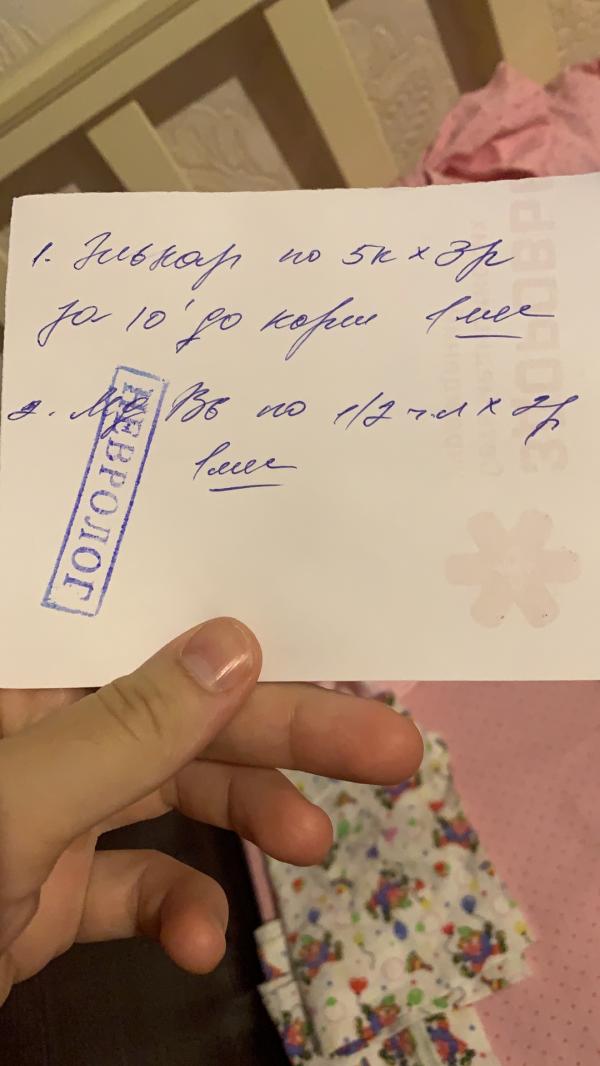 1. Элькар по 5к х 3р
за 10' до корм 1 мес
2. Mg B6 по 1/2 ч.л х 2р
1 мес
НЕВРОЛОГ
ЗДОРОВЬ